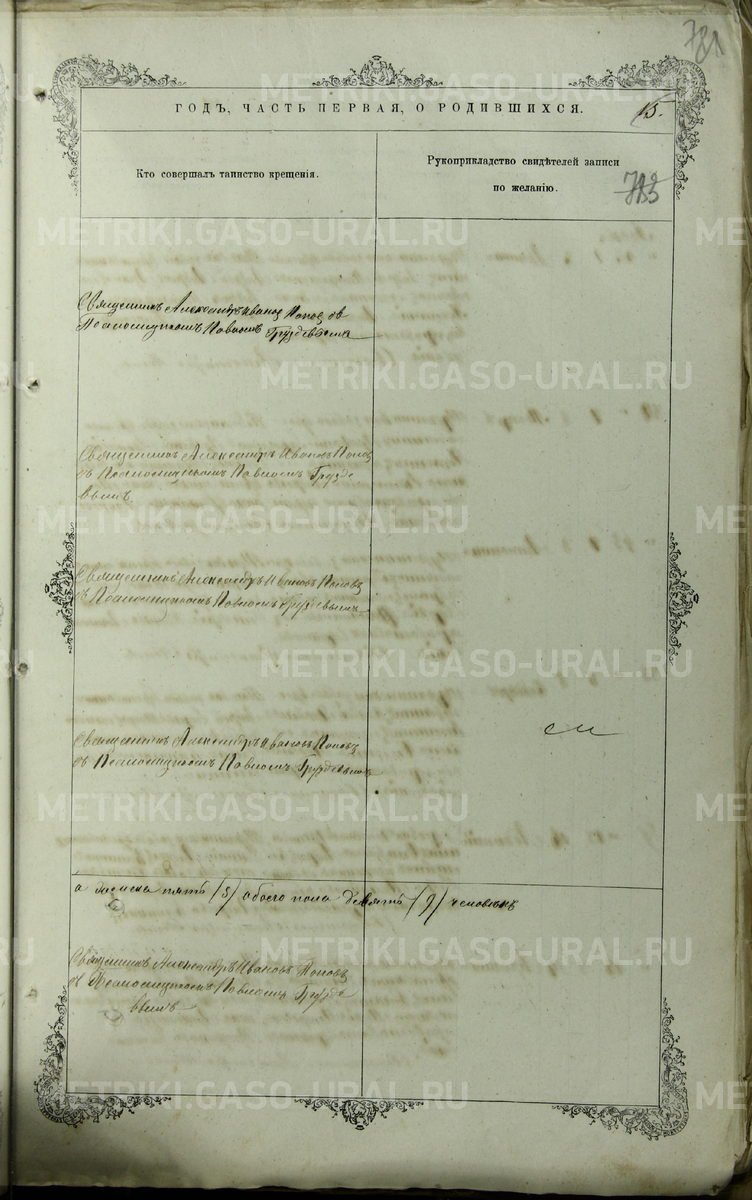 781
ГОДЪ, ЧАСТЬ ПЕРВАЯ, О РОДИВШИХСЯ.
15.
Кто совершалъ таинство крещенія.
Рукоприкладство свидѣтелей записи
по желанію.
Священникъ Александръ Ивановъ Поповъ съ
Псаломщикомъ Павломъ Груздевымъ
Священникъ Александръ Ивановъ Поповъ
съ Псаломщикомъ Павломъ Грузде
вымъ
Священникъ Александръ Ивановъ Поповъ
съ Псаломщикомъ Павломъ Груздевымъ
Священникъ Александръ Ивановъ Поповъ
съ Псаломщикомъ Павломъ Груздевымъ
а женска пять (5) обоего пола девять (9) человѣкъ
Священникъ Александръ Ивановъ Поповъ
съ Псаломщикомъ Павломъ Грузде
вымъ
METRIKI.GASO-URAL.RU